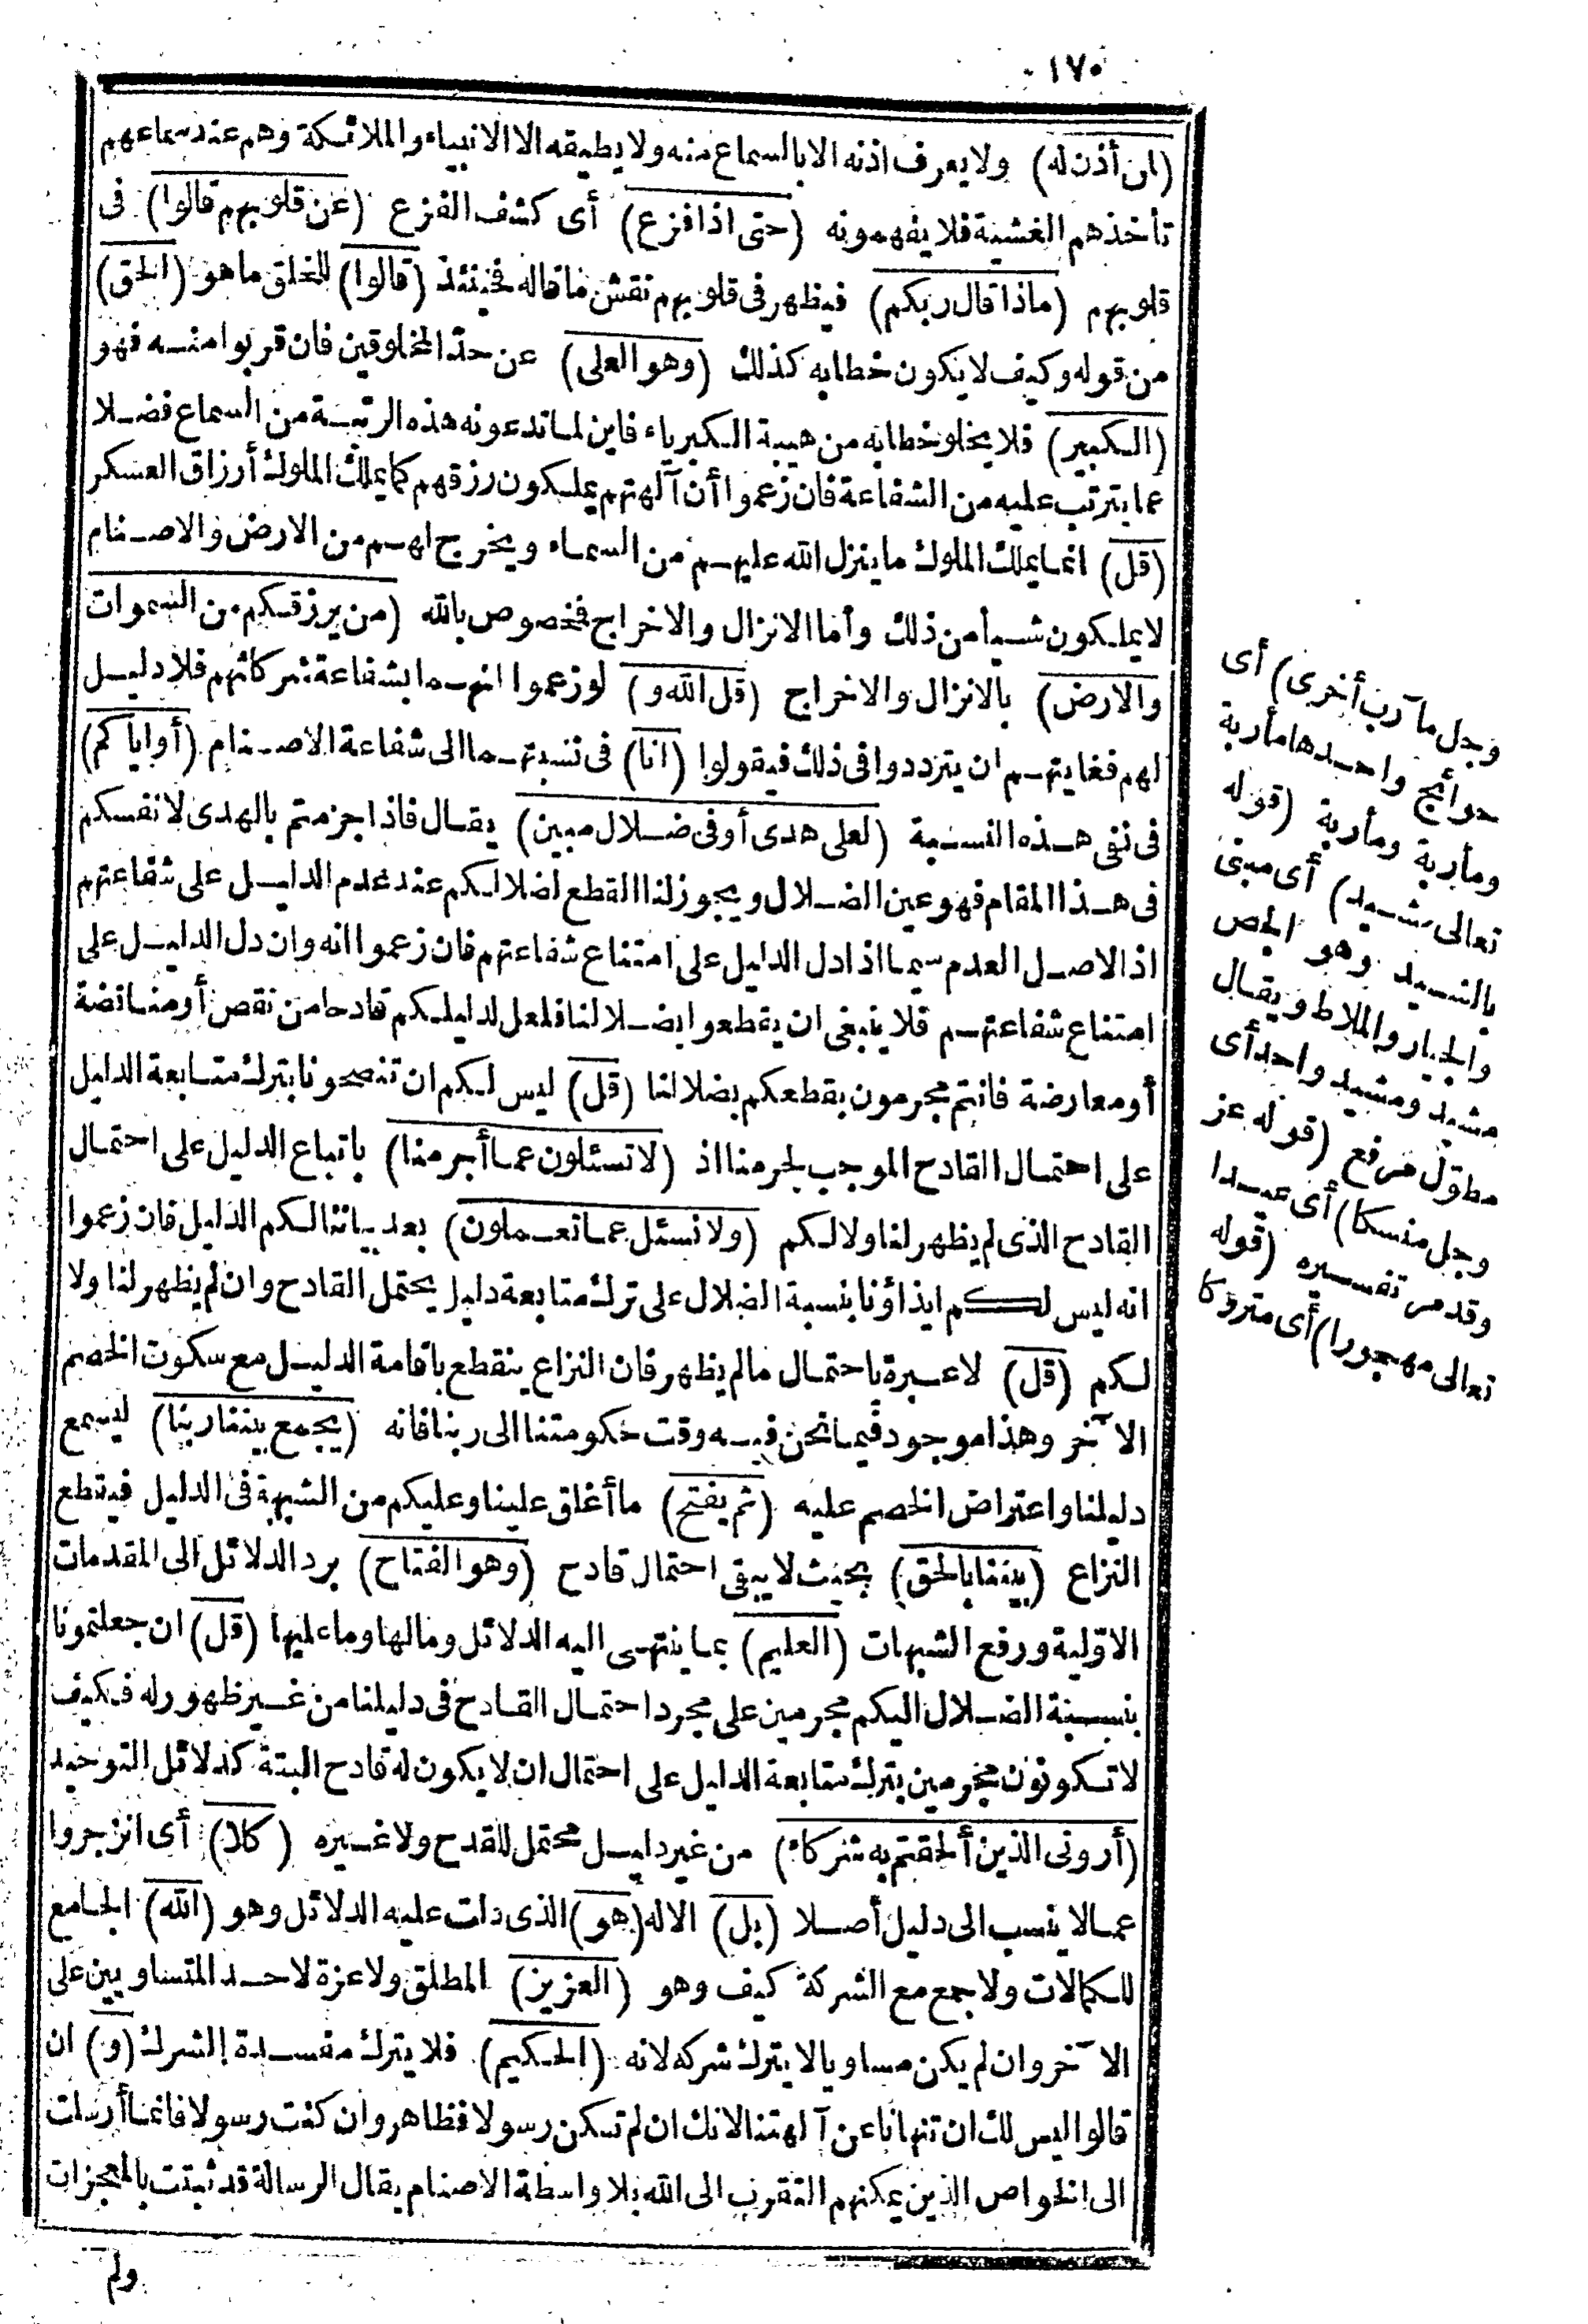 ١٧٠
(ان أذن له) ولا يعرف اذنه الا بالسماع منه ولا يطيقه الا الانبياء والملائكة وهم عند سماعهم
تأخذهم الغشية فلا يفهمونه (حتى اذا فزع) أى كشف الفزع (عن قلوبهم قالوا) فى
قلوبهم (ماذا قال ربكم) فيظهر فى قلوبهم نقش ما قاله فحينئذ (قالوا) للخلق ما هو (الحق)
من قوله وكيف لا يكون خطابه كذلك (وهو العلى) عن حد المخلوقين فان قربوا منه فهو
(الكبير) فلا يخلو خطابه من هيبة الكبرياء فاين لما تدعونه هذه الرتبة من السماع فضلا
عما يترتب عليه من الشفاعة فان زعموا أن آلهتهم يملكون رزقهم كما يملك الملوك أرزاق العسكر
(قل) انما يملك الملوك ما ينزل الله عليهم من السماء ويخرج لهم من الارض والاصنام
لا يملكون شيأ من ذلك وأما الانزال والاخراج فمخصوص بالله (من يرزقكم من السموات
والارض) بالانزال والاخراج (قل الله و) لو زعموا انهما بشفاعة شركائهم فلا دليل
لهم فغايتهم ان يترددوا فى ذلك فيقولوا (انا) فى نسبتهما الى شفاعة الاصنام (أو اياكم)
فى نفى هذه النسبة (لعلى هدى أو فى ضلال مبين) يقال فاذا جزمتم بالهدى لانفسكم
فى هذا المقام فهو عين الضلال ويجوز لنا القطع لضلالكم عند عدم الدليل على شفاعتهم
اذ الاصل العدم سيما اذا دل الدليل على امتناع شفاعتهم فان زعموا انه وان دل الدليل على
امتناع شفاعتهم فلا ينبغى ان يقطعوا بضلالنا فلعل لدليلكم قادحا من نقص أو مناقضة
أو معارضة فانتم مجرمون بقطعكم بضلالنا (قل) ليس لكم ان تنصحونا بترك متابعة الدليل
على احتمال القادح الموجب لجرمنا اذ (لا تسئلون عما أجرمنا) باتباع الدليل على احتمال
القادح الذى لم يظهر لنا ولا لكم (ولا نسئل عما تعملون) بعد بياننا لكم الدليل فان زعموا
انه ليس لكم ايذاؤنا بنسبة الضلال على ترك متابعة دليل يحتمل القادح وان لم يظهر لنا ولا
لكم (قل) لا عبرة باحتمال ما لم يظهر فان النزاع ينقطع باقامة الدليل مع سكوت الخصم
الآخر وهذا موجود فيما نحن فيه وقت حكومتنا الى ربنا فانه (يجمع بيننا ربنا) ليسمع
دليلنا واعتراض الخصم عليه (ثم يفتح) ما أغلق علينا وعليكم من الشبهة فى الدليل فيقطع
النزاع (بيننا بالحق) بحيث لا يبقى احتمال قادح (وهو الفتاح) برد الدلائل الى المقدمات
الاولية ورفع الشبهات (العليم) بما ينتهى اليه الدلائل وما لها وما عليها (قل) ان جعلتمونا
بنسبة الضلال اليكم مجرمين على مجرد احتمال القادح فى دليلنا من غير ظهور له فكيف
لا تكونون مجرمين بترك متابعة الدليل على احتمال ان لا يكون له قادح البتة كدلائل التوحيد
(أرونى الذين ألحقتم به شركاء) من غير دليل محتمل للقدح ولا غيره (كلا) أى انزجروا
عما لا ينسب الى دليل أصلا (بل) الاله (هو) الذى دلت عليه الدلائل وهو (الله) الجامع
للكمالات ولا جمع مع الشركة كيف وهو (العزيز) المطلق ولا عزة لاحد المتساويين على
الآخر وان لم يكن مساويا لا يترك شركه لانه (الحكيم) فلا يترك مفسدة الشرك (و) ان
قالوا ليس لك ان تنهانا عن آلهتنا لانك ان لم تكن رسولا فظاهر وان كنت رسولا فانما أرسلت
الى الخواص الذين يمكنهم التقرب الى الله بلا واسطة الاصنام يقال الرسالة قد ثبتت بالمعجزات
ولم
وجل مآرب أخرى) أى
حوائج واحدها مأربة
ومأربة ومأربة (قوله
تعالى مشيد) أى مبنى
بالشيد وهو الجص
والجيار والملاط ويقال
مشيد ومشيد واحد أى
مطول مرفع (قوله عز
وجل منسكا) أى عيدا
وقد مر تفسيره (قوله
تعالى مهجورا) أى متروكا